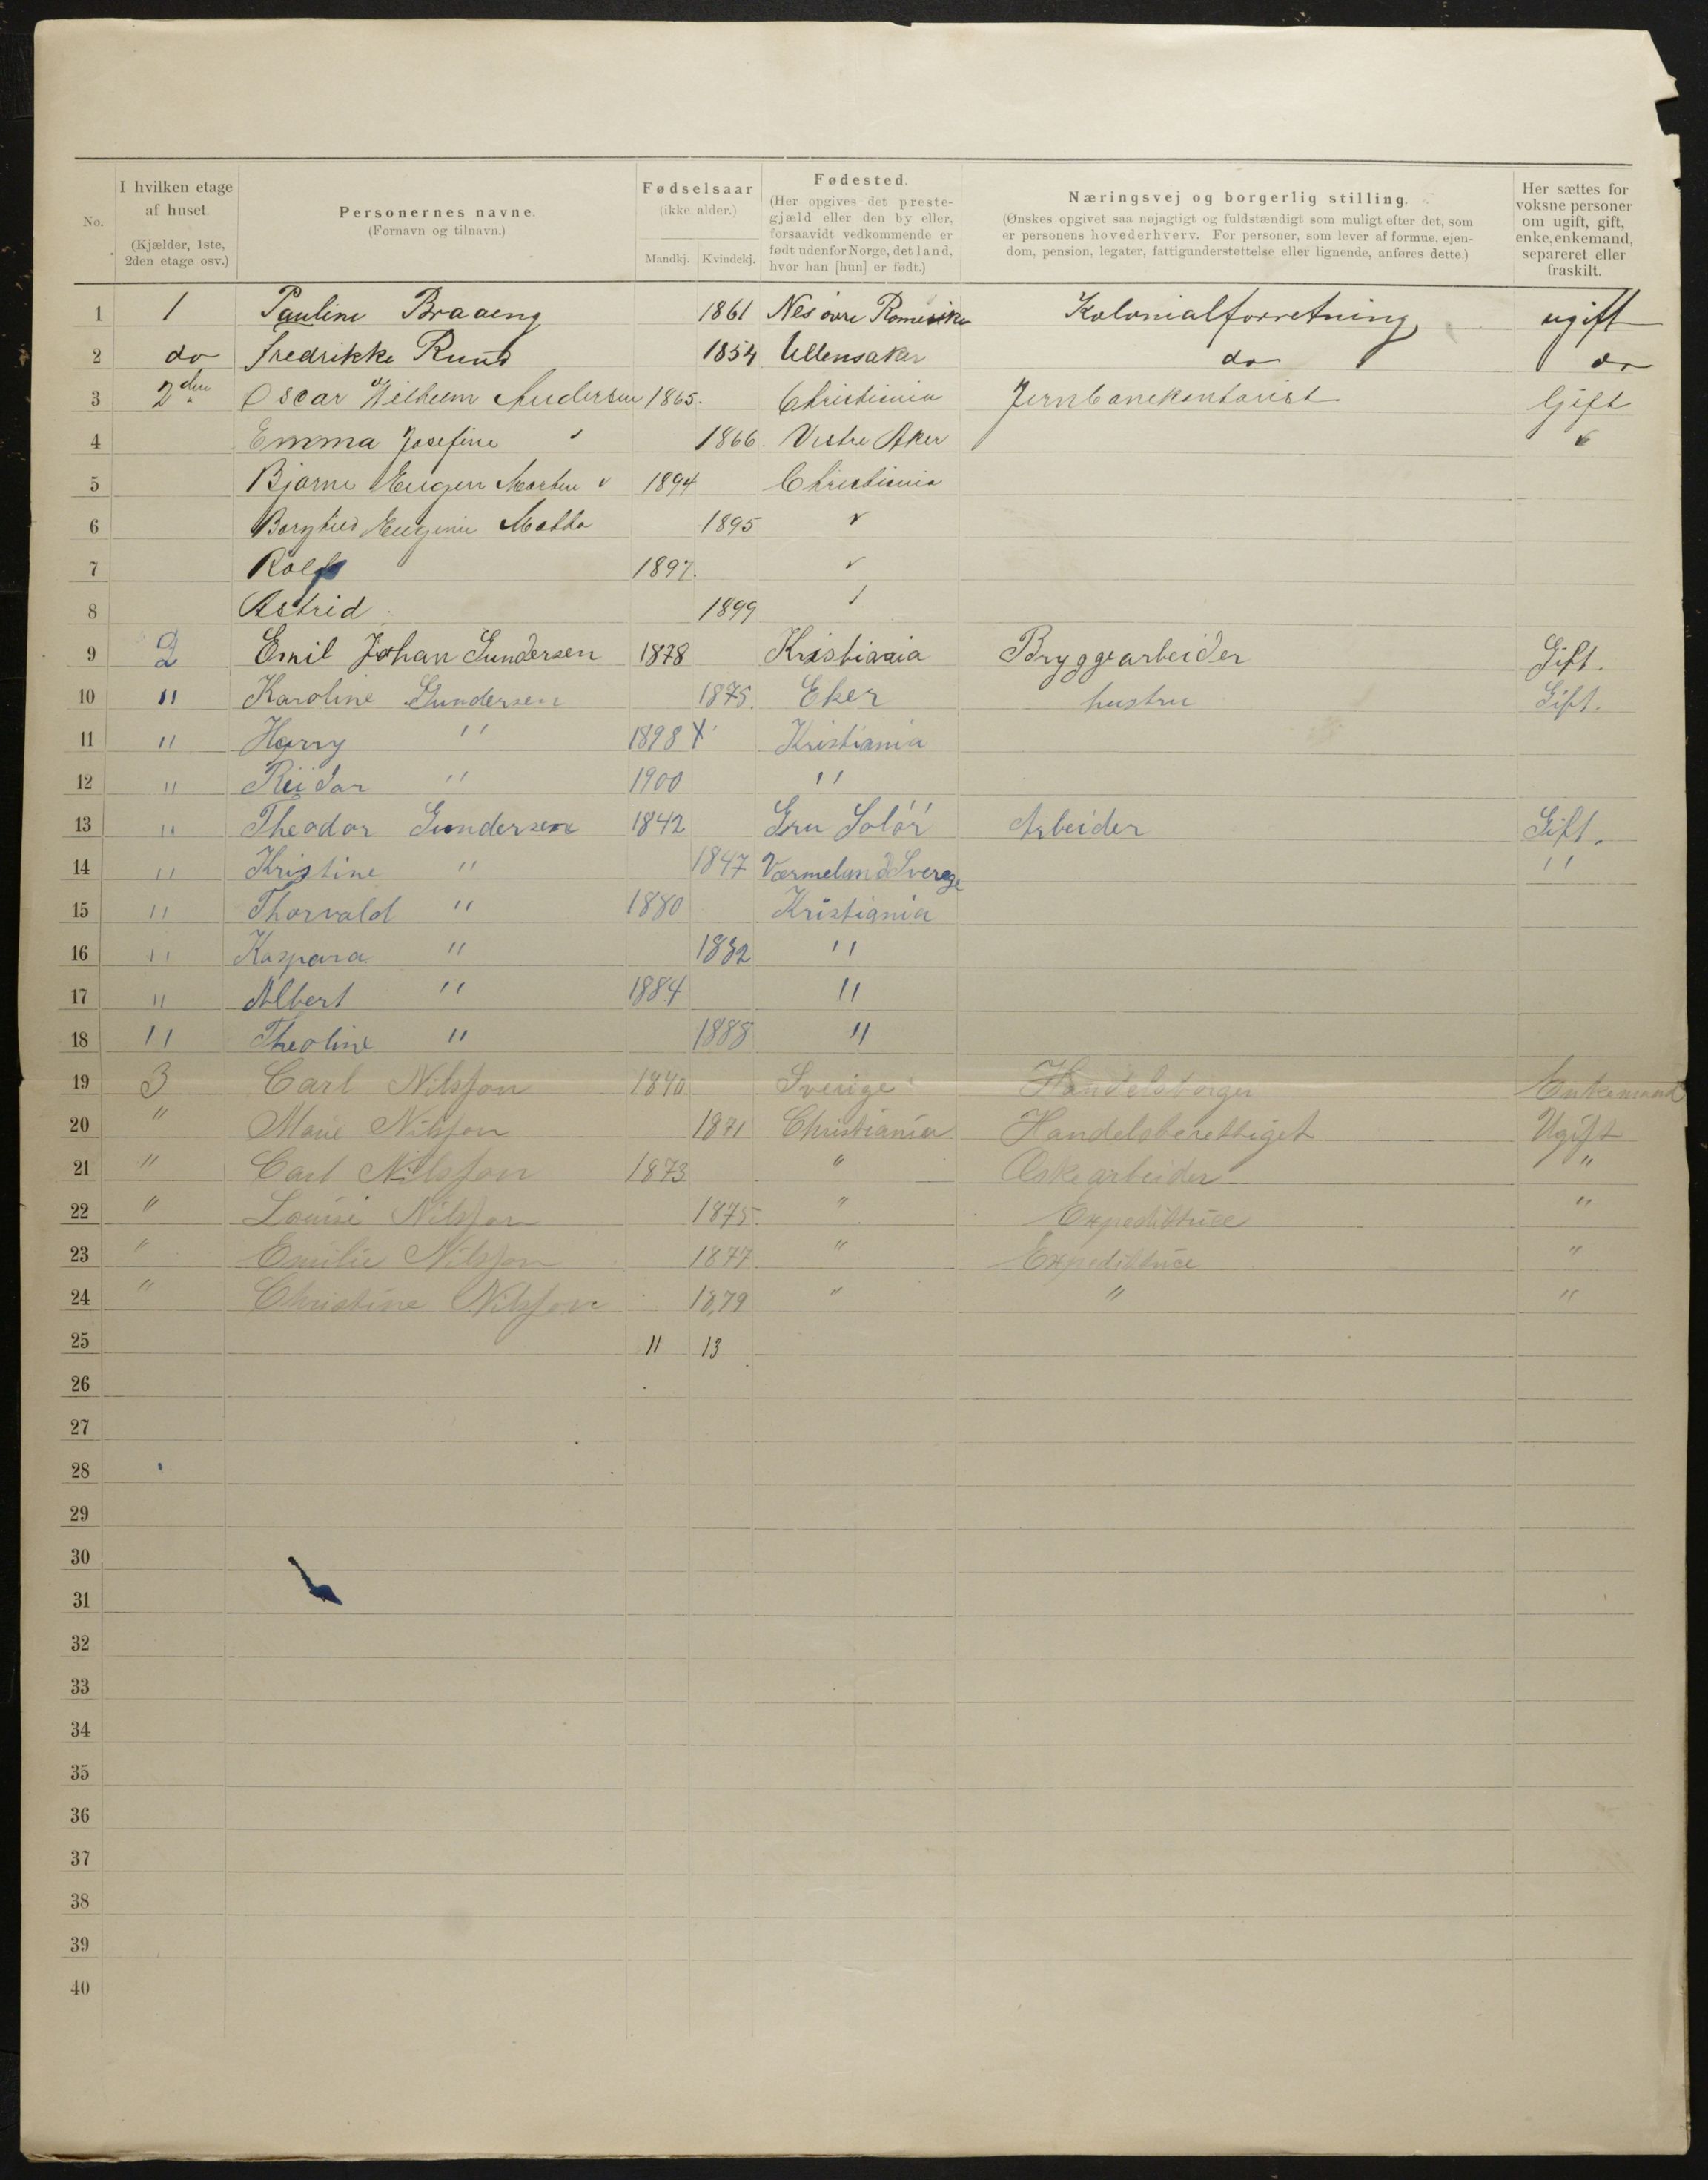 No.
I hvilken etage af huset. (Kjælder, 1ste, 2den etage osv.)
Personernes navne. (Fornavn og tilnavn.)
Fødselsaar (ikke alder.) Mandkj. Kvindekj.
Fødested. (Her opgives det prestegjæld eller den by eller, forsaavidt vedkommende er født udenfor Norge, det land, hvor han [hun] er født.)
Næringsvej og borgerlig stilling. (Ønskes opgivet saa nøjagtigt og fuldstændigt som muligt efter det, som er personens hovederhverv. For personer, som lever af formue, ejendom, pension, legater, fattigunderstøttelse eller lignende, anføres dette.)
Her sættes for voksne personer om ugift, gift, enke, enkemand, separeret eller fraskilt.
1 1 Pauline Braaeng 1861 Nes øvre Romerike Kolonialforretning ugift
2 do Fredrikke Rund 1854 Ullensaker do do
3 2den Oscar Wilhelm Andersen 1865. Christiania Jernbanekontorist Gift
4 Emma Josefine " 1866. Vestre Aker "
5 Bjarne Eugen Morten " 1894 Christiania
6 Borghild Eugenie 1895 "
7 Rolf 1897. "
8 Astrid 1899 "
9 2 Emil Johan Gundersen 1878 Kristiania Bryggearbeider Gift.
10 " Karoline Gundersen 1875. Eker hustru Gift.
11 " Harry " 1898 Kristiania
12 " Reidar " 1900 "
13 " Theodor Gundersen 1842 Gru Solør Arbeider Gift.
14 " Kristine " 1847 Værmeland Sverege "
15 " Thorvald " 1880 Kristiania
16 " Kaspara " 1882 "
17 " Albert " 1884 "
18 " Theoline " 1888 "
19 3 Carl Nilsson 1840 Sverige Handelsborger Enkemand
20 " Marie Nilsson 1871 Christiania Handelsberettiget Ugift
21 " Carl Nilsson 1873 " Æskearbeider "
22 " Louise Nilsson 1875 " Expeditrice "
23 " Emilie Nilsson 1877 " Expeditrice "
24 " Christine Nilsson 1879 " " "
25 11 13
26
27
28
29
30
31
32
33
34
35
36
37
38
39
40